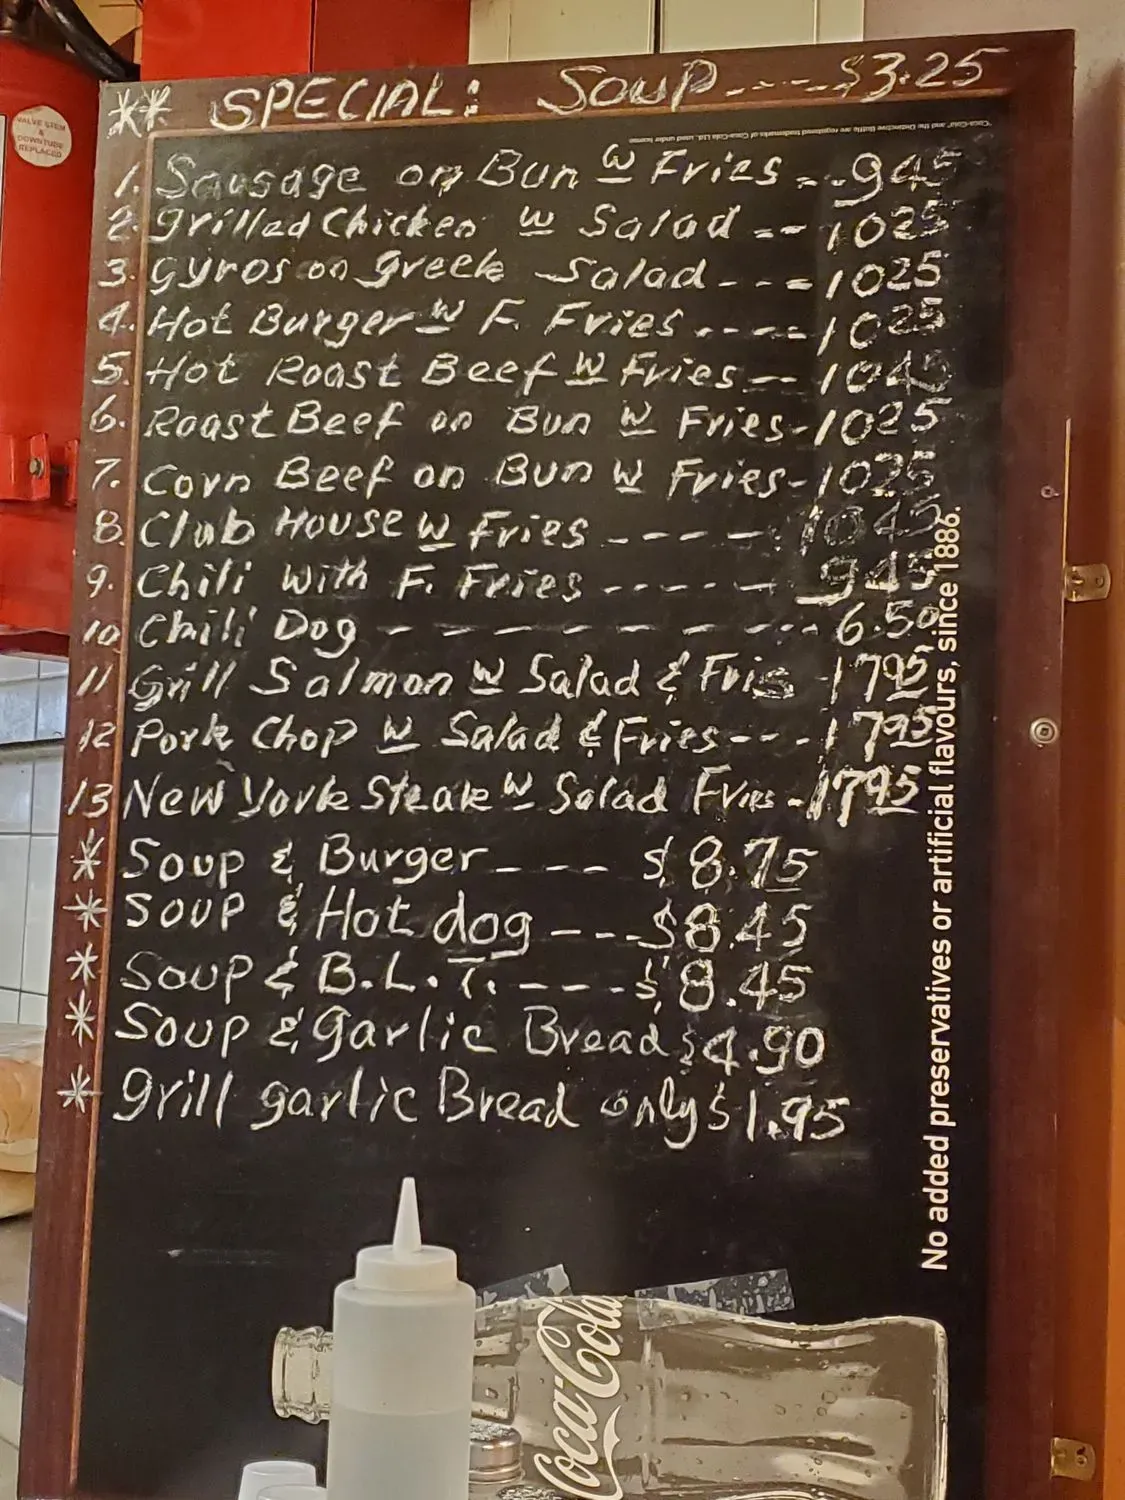 ** SPECIAL: SOUP----$3.25
1. Sausage on Bun w Fries --945
2. Grilled Chicken w Salad -- 1025
3. Gyros on greek Salad --- 1025
4. Hot Burger w F. Fries ---- 1025
5. Hot Roast Beef w Fries -- 1045
6. Roast Beef on Bun w Fries-1025
7. Corn Beef on Bun w Fries-1025
8. Club House w Fries ----- 1045
9. Chili with F. Fries ------ 945
10 Chili Dog ---------- 6.50
11 Grill Salmon w Salad & Fris -1795
12 Pork Chop w Salad & Fries---1795
13 New York Steak w Salad Fries -1795
* Soup & Burger---- $8.75
* Soup & Hot dog ---$8.45
* Soup & B.L.T.----$8.45
* Soup & garlic Bread $4.90
* grill garlic Bread only $1.95
No added preservatives or artificial flavours, since 1886.
Coca-Cola
VALVE STEM
&
DOWNTUBE
REPLACED
"Coca-Cola" and the Distinctive Bottle are registered trademarks of Coca-Cola Ltd. used under license